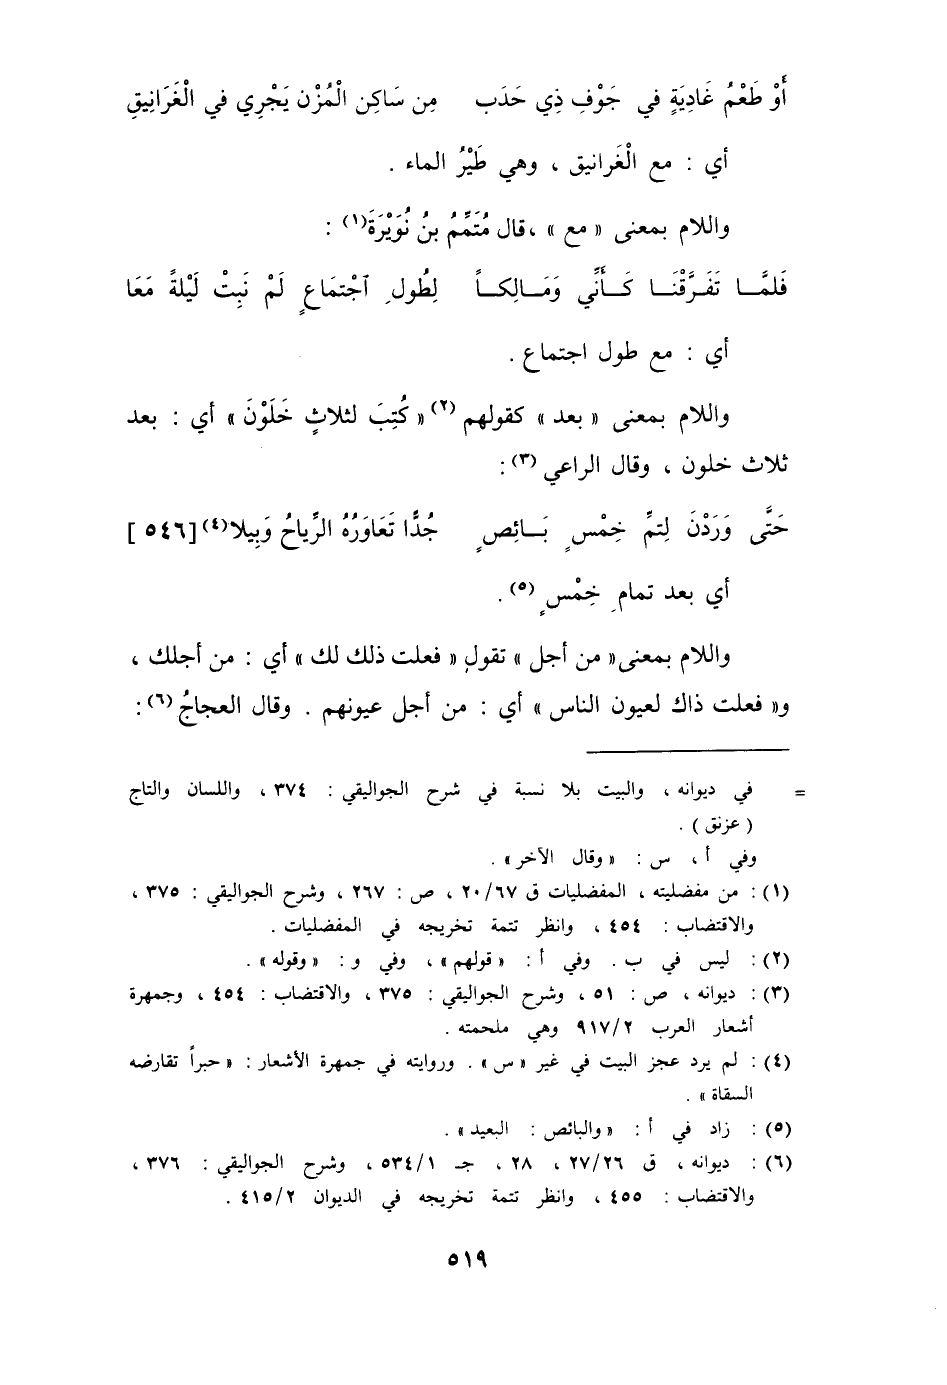 أَوْ طَعْمُ غَادِيَةٍ في جَوْفِ ذِي حَدَبٍ مِن سَاكِنِ الْمُزْنِ يَجْرِي في الْغَرَانِيقِ
أي : مع الْغَرانيق ، وهي طَيْرُ الماء .
واللام بمعنى « مع » ،قال مُتَمِّمُ بنُ نُوَيْرَةَ(١) :
فَلمَّـــا تَفَـرَّقْنَـــا كَـــأَنِّي وَمَـــالِكـــاً لِطُولِ ٱجْتِمَاعٍ لَمْ نَبِتْ لَيْلةً مَعَا
أي : مع طول اجتماع .
واللام بمعنى « بعد » كقولهم (٢) « كُتِبَ لثلاثٍ خَلَوْنَ » أي : بعد
ثلاث خلون ، وقال الراعي (٣) :
حَتَّى وَرَدْنَ لِتمِّ خِمْسٍ بَـــائِصٍ جُدًّا تَعَاوَرُهُ الرِّياحُ وَبِيلا(٤) [ ٥٤٦ ]
أي بعد تمامِ خِمْسٍ (٥) .
واللام بمعنى« من أجل » تقول « فعلت ذلك لك » أي : من أجلك ،
و« فعلت ذاك لعيون الناس » أي : من أجل عيونهم . وقال العجاجُ (٦) :
= في ديوانه ، والبيت بلا نسبة في شرح الجواليقي : ٣٧٤ ، واللسان والتاج
( عزنق ) .
وفي أ ، س : « وقال الآخر» .
(١) : من مفضليته ، المفضليات ق ٢٠/٦٧ ، ص : ٢٦٧ ، وشرح الجواليقي : ٣٧٥ ،
والاقتضاب : ٤٥٤ ، وانظر تتمة تخريجه في المفضليات .
(٢) : ليس في ب . وفي أ : « قولهم » ، وفي و : « وقوله » .
(٣) : ديوانه ، ص : ٥١ ، وشرح الجواليقي : ٣٧٥ ، والاقتضاب : ٤٥٤ ، وجمهرة
أشعار العرب ٩١٧/٢ وهي ملحمته .
(٤) : لم يرد عجز البيت في غير « س » . وروايته في جمهرة الأشعار : « حبراً تقارضه
السقاة » .
(٥) : زاد في أ : « والبائص : البعيد » .
(٦) : ديوانه ، ق ٢٧/٢٦ ، ٢٨ ، جـ ٥٣٤/١ ، وشرح الجواليقي : ٣٧٦ ،
والاقتضاب : ٤٥٥ ، وانظر تتمة تخريجه في الديوان ٤١٥/٢ .
٥١٩